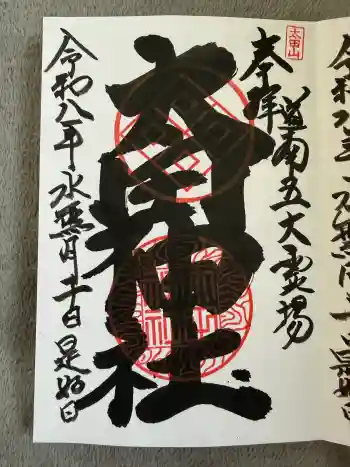 太田山
奉拝 道南五大霊場
太田神社
令和八年水無月十一日 是好日